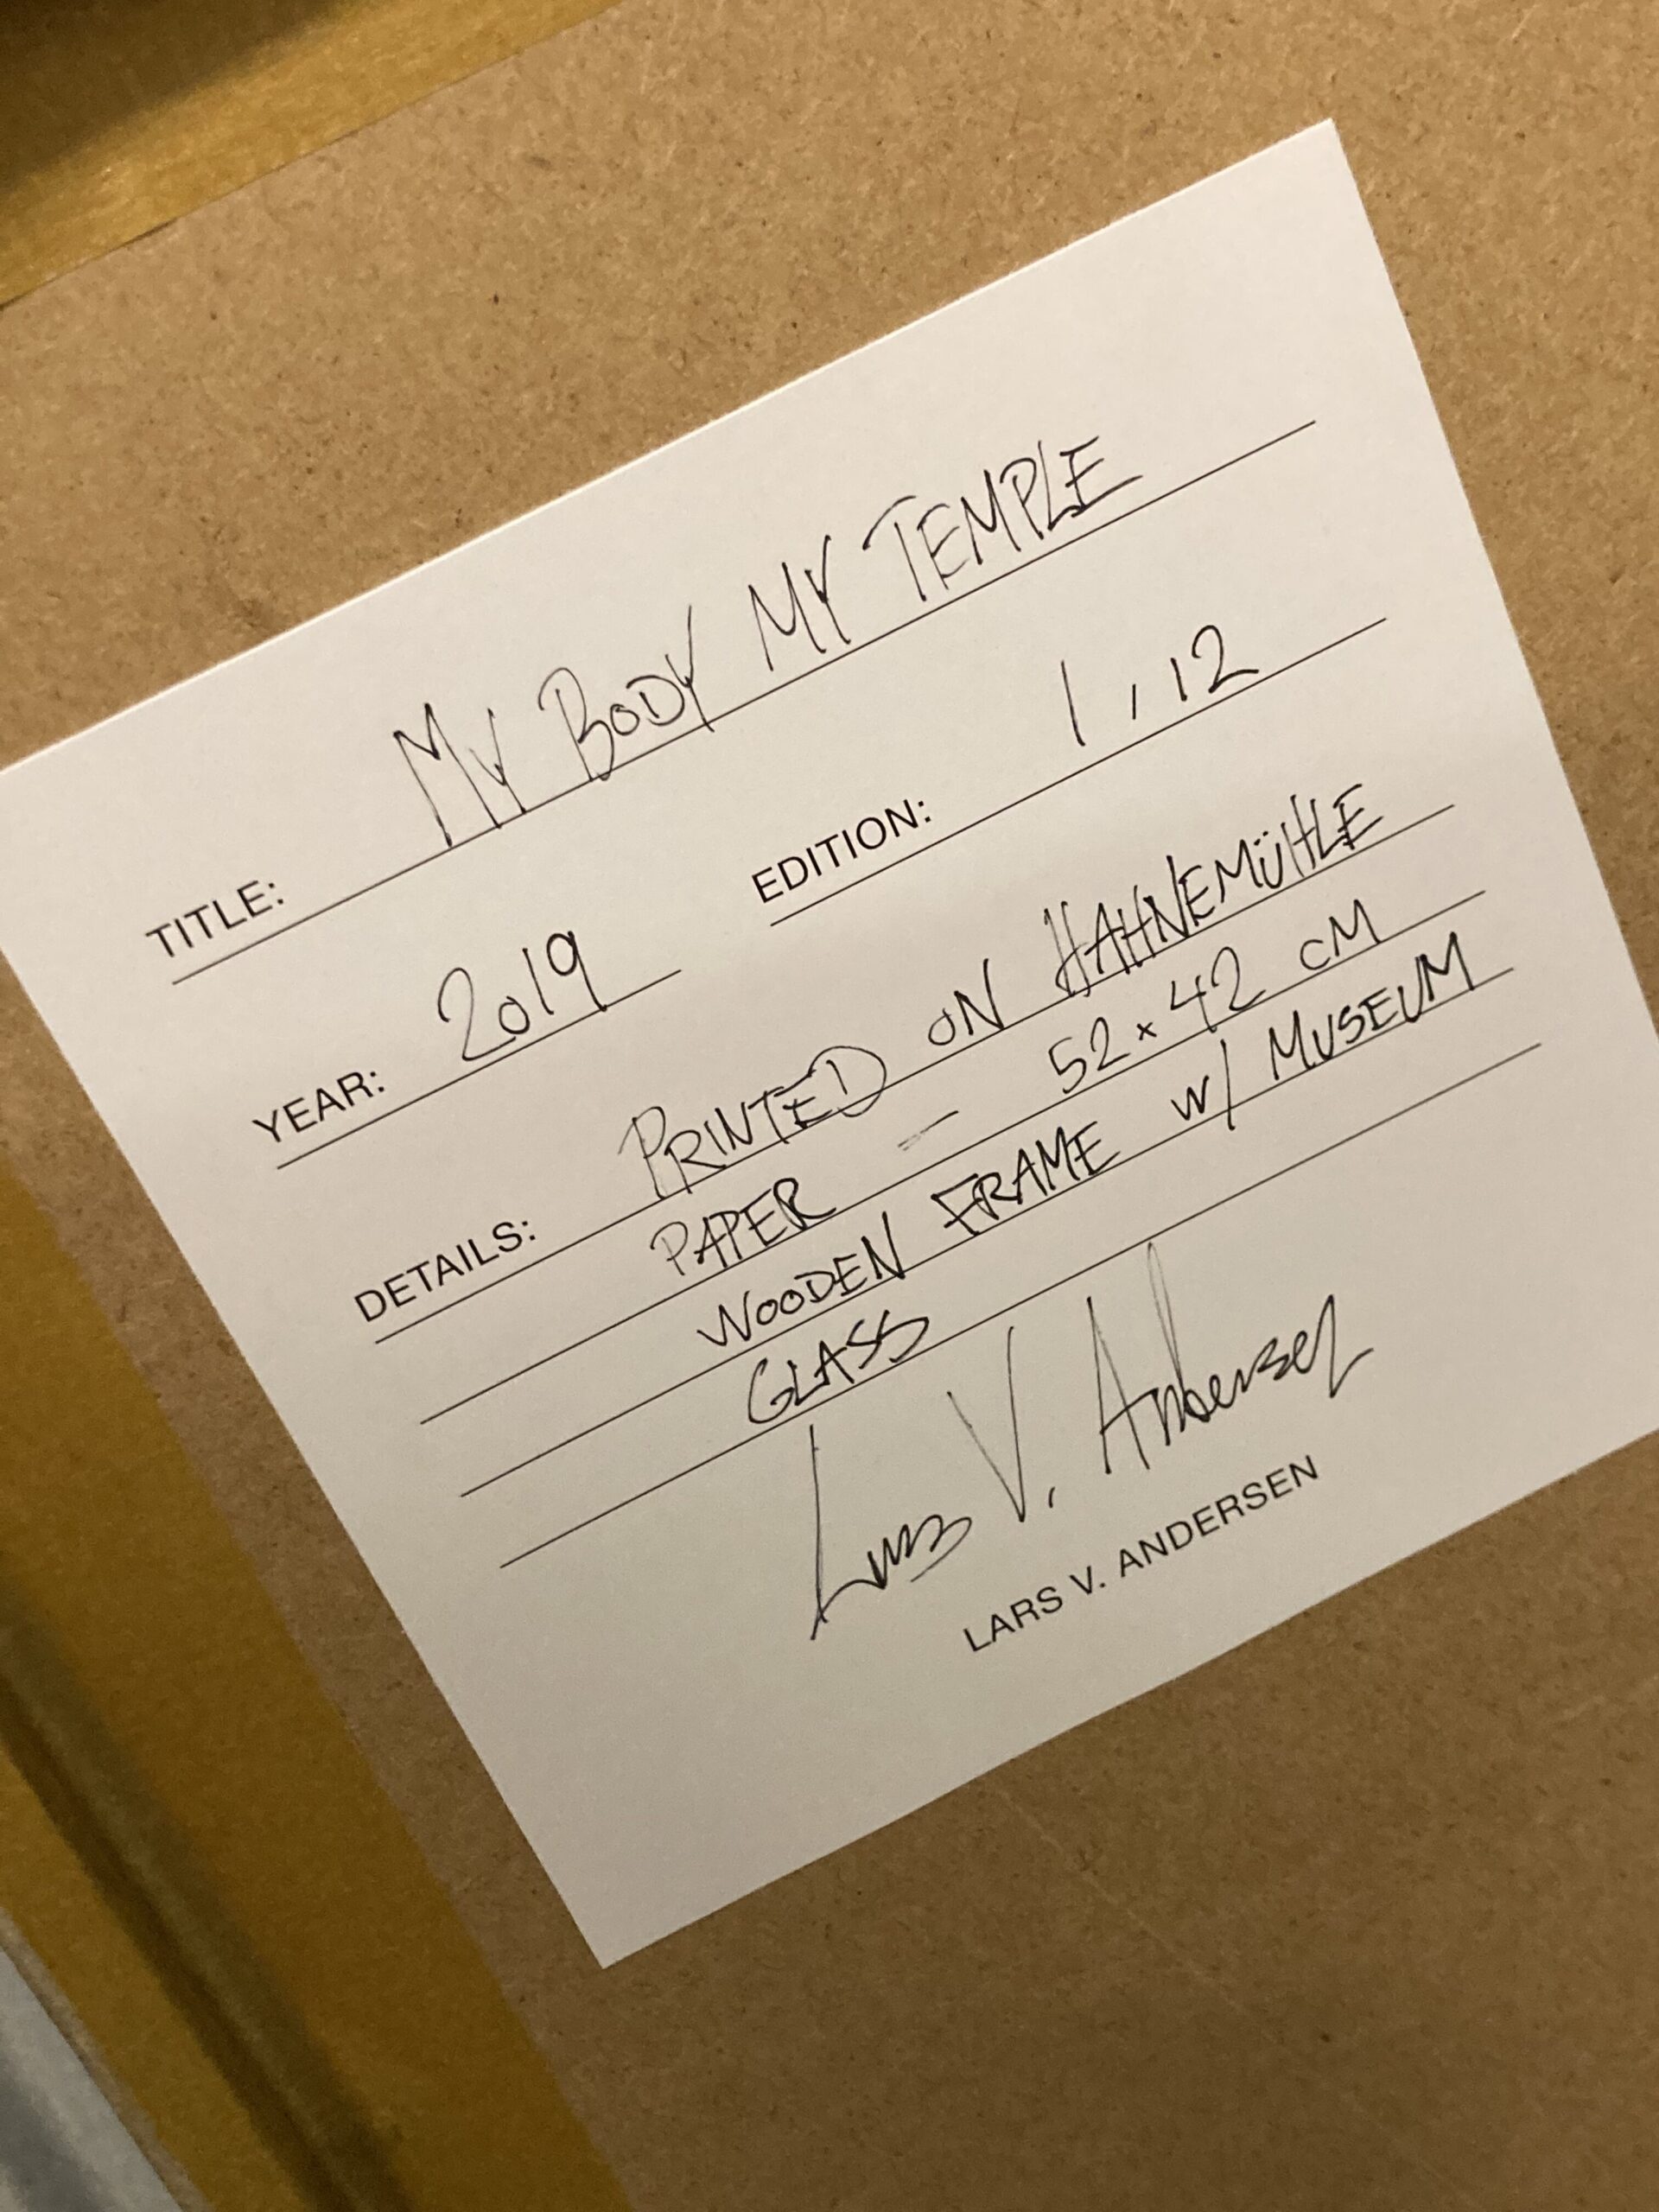 TITLE: MY BODY MY TEMPLE
YEAR: 2019 EDITION: 1 , 12
DETAILS: PRINTED ON HAHNEMÜHLE
PAPER - 52 x 42 CM
WOODEN FRAME W/ MUSEUM
GLASS
Lars V. Andersen
LARS V. ANDERSEN